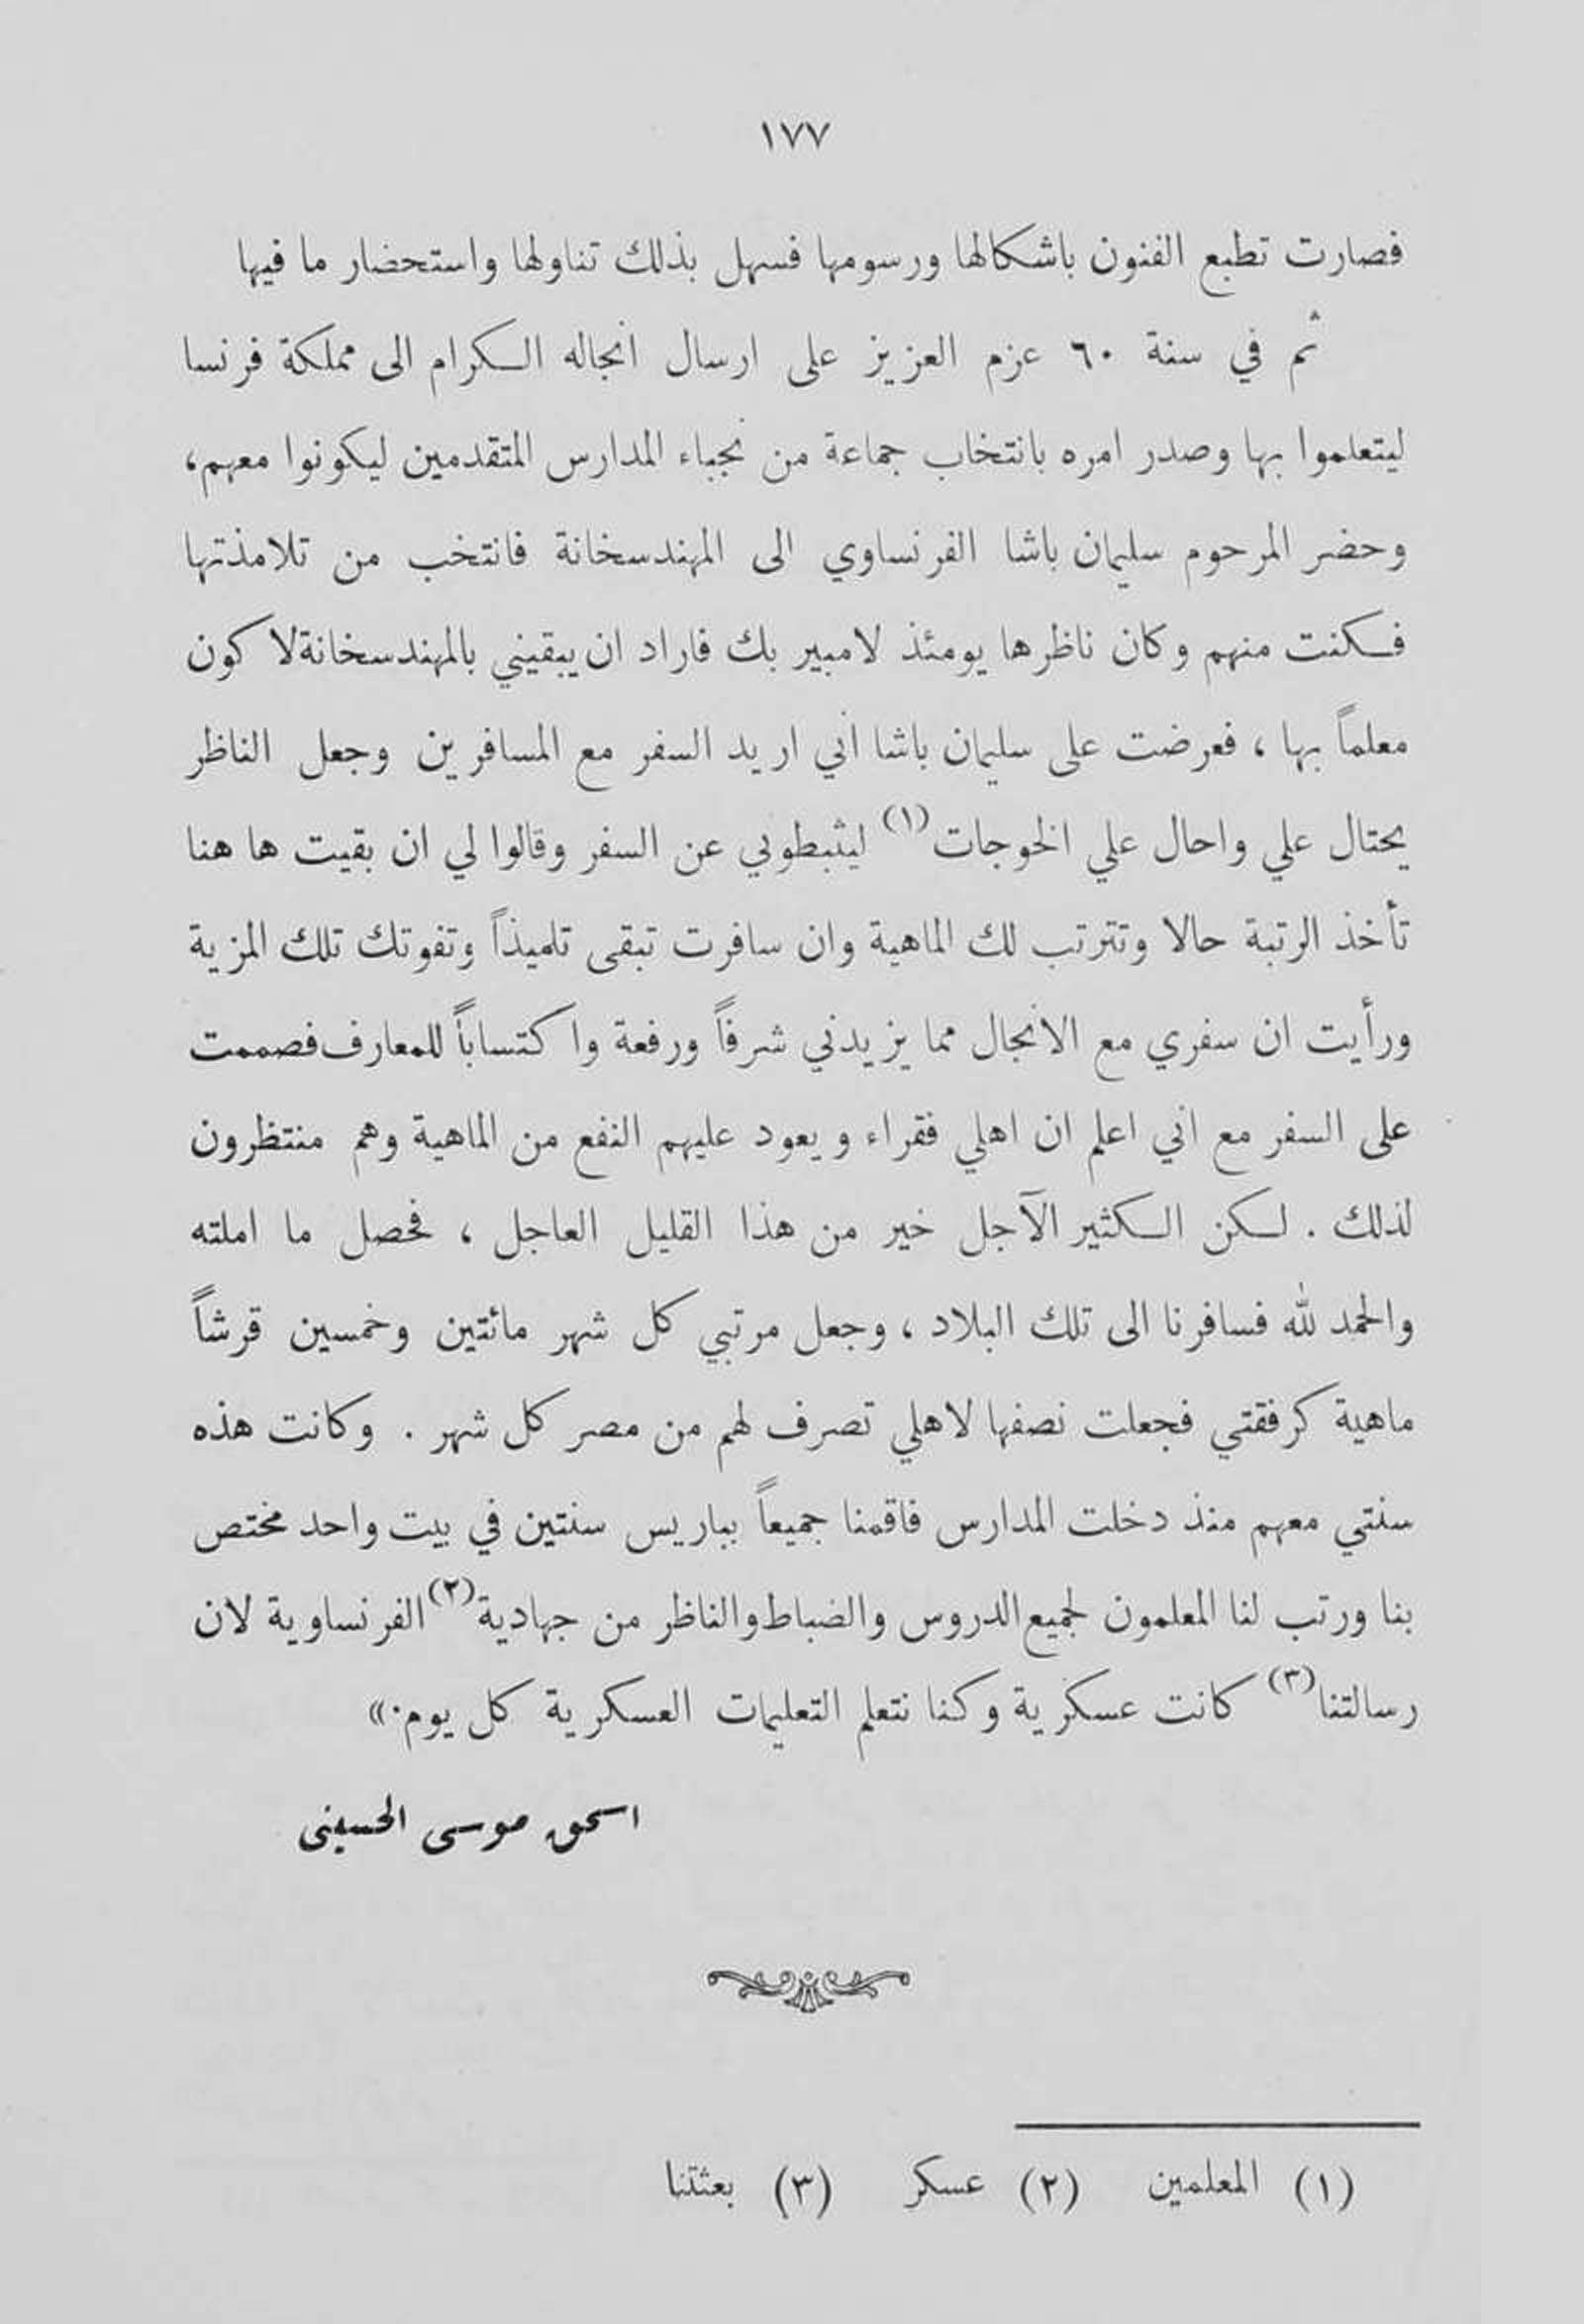 ١٧٧
فصارت تطبع الفنون باشكالها ورسومها فسهل بذلك تناولها واستحضار ما فيها
ثم في سنة ٦٠ عزم العزيز على ارسال انجاله الكرام الى مملكة فرنسا
ليتعلموا بها وصدر امره بانتخاب جماعة من نجباء المدارس المتقدمين ليكونوا معهم،
وحضر المرحوم سليمان باشا الفرنساوي الى المهندسخانة فانتخب من تلامذتها
فكنت منهم وكان ناظرها يومئذ لامبير بك فاراد ان يبقيني بالمهندسخانة لاكون
معلماً بها ، فعرضت على سليمان باشا أني اريد السفر مع المسافرين وجعل الناظر
يحتال علي واحال علي الخوجات (١) ليثبطوني عن السفر وقالوا لي ان بقيت ها هنا
تأخذ الرتبة حالا وتترتب لك الماهية وان سافرت تبقى تلميذاً وتفوتك تلك المزية
ورأيت ان سفري مع الانجال مما يزيدني شرفاً ورفعة واكتساباً للمعارف فصممت
على السفر مع اني اعلم ان اهلي فقراء ويعود عليهم النفع من الماهية وهم منتظرون
لذلك . لكن الكثير الآجل خير من هذا القليل العاجل ، فحصل ما املته
والحمد لله فسافرنا الى تلك البلاد ، وجعل مرتبي كل شهر مائتين وخمسين قرشاً
ماهية كرفقتي فجعلت نصفها لاهلي تصرف لهم من مصر كل شهر . وكانت هذه
سنتي معهم منذ دخلت المدارس فاقمنا جميعاً بباريس سنتين في بيت واحد مختص
بنا ورتب لنا المعلمون لجميع الدروس والضباط والناظر من جهادية (٢) الفرنساوية لان
رسالتنا (٣) كانت عسكرية وكنا نتعلم التعليمات العسكرية كل يوم.»
اسحق موسى الحسيني
(١) المعلمين (٢) عسكر (٣) بعثتنا